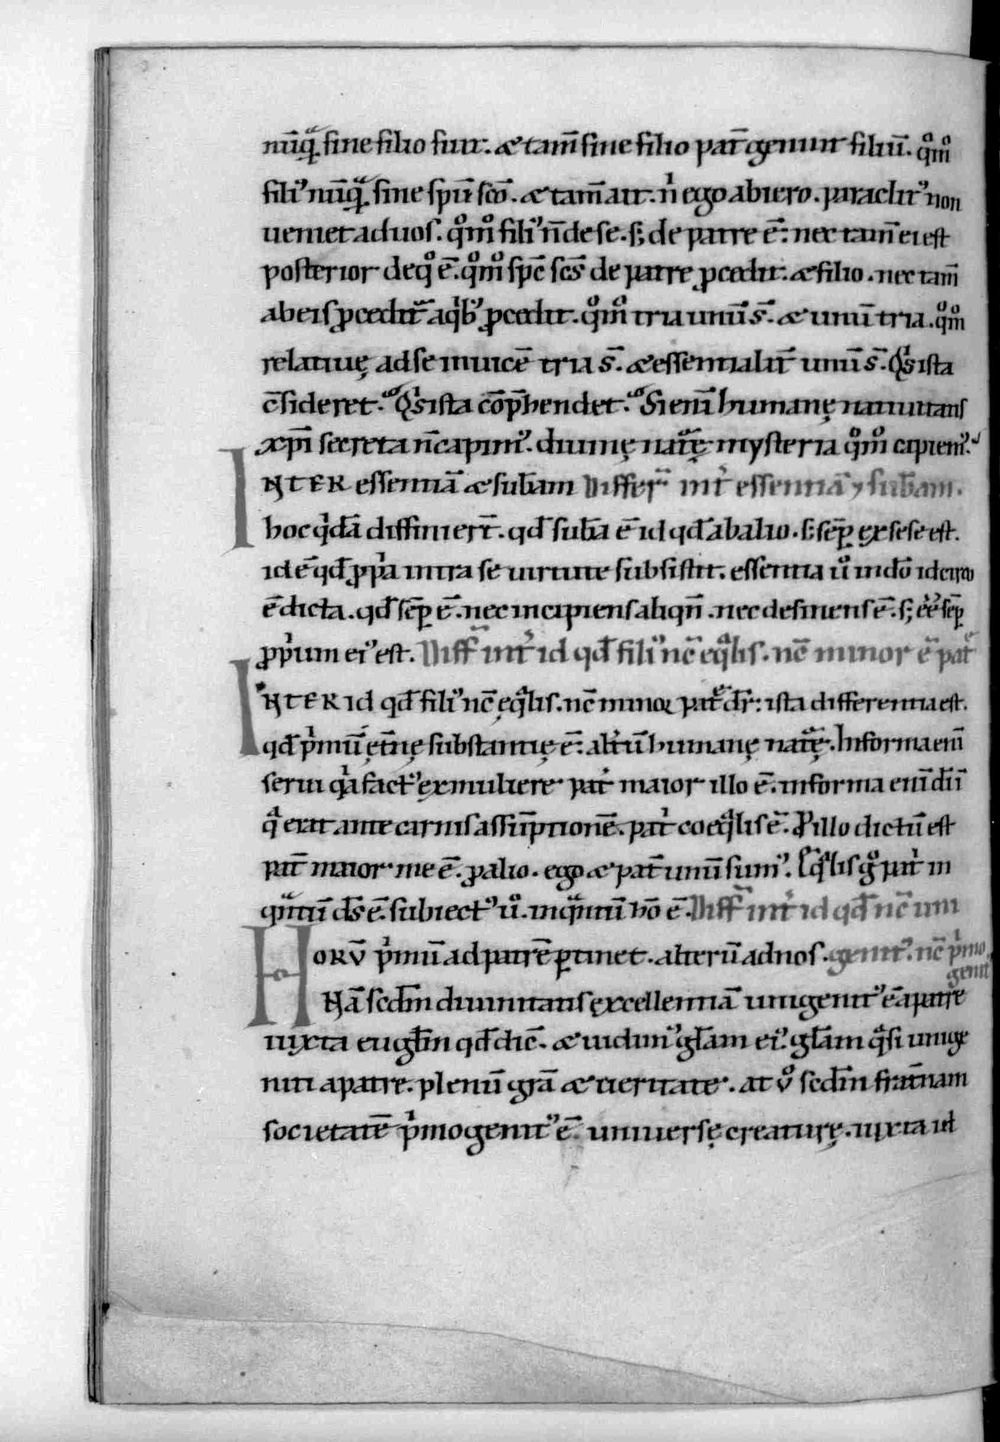 nūqͣ sine filio fuit. & tam̄ sine filio pat̄ genuit filiū. qͦmͦ
fili᾽ nūqͣ sine sp̄u sc̄o. & tam̄ ait. n̄ ego abiero. paraclit᾽ non
ueniet ad uos. qͦmͦ fili᾽ n̄ de se. s; de patre ē. nec tam̄ ei est
posterior de qͦ ē. qͦmͦ sp̄c sc̄s de patre ꝓcedit. & filio. nec tam̄
ab eis ꝓcedit̄ a qͥb᾽ ꝓcedit. qͦmͦ tria unū s̄. & unū tria. qͦmͦ
relatiuę ad se inuicē tria s̄. & essentialit̄ unū s̄. Qͥs ista
c̄sideret. Qͥs ista cōp̄hendet. Si eni̅ humanę natiuitatis
xp̄i secreta n̄ capim᾽. diuinę nat̄ę mysteria qͦmͦ capiem᾽.
INTER essentiā & sub̄am Differ̄ int̓ essentiā ⁊ sub̄am.
hoc qͥdā diffinier̄t. qd̄ sub̄a ē id qd̄ ab alio. s; sēp ex sese est.
id ē qd̄ ꝓp̓a intra se uirtute subsistit. essentia ū̊ in dō idcirco
ē dicta. qd̄ sēp ē. nec incipiens aliqn̄. nec desinens ē. s; eē sēp
ꝓp̓um ei᾽ est. Diff̄ int̓ id qd̄ fili᾽ nc̄ eqͣlis. nc̄ minor ē pat̓
INTER id qd̄ fili᾽ nc̄ ęqͣlis. nc̄ minor pat̓ dr̄. ista differentia est.
qd̄ p̓mū ęt̄nę substantię ē. alt̓ū humanę nat̄ę. In forma eni̅
serui qͥa fact᾽ ex muliere pat̓ maior illo ē. in forma eni̅ dī
qͣ erat ante carnis assūptionē. pat̓ coeqͣlis ē. P illo dictū est
pat̄ maior me ē. ꝓ alio. ego & pat̄ unū sum᾽. Eqͣlis gͦ pat̓ in
qͣntū ds̄ ē. subiect᾽ ū̊. inqͣntū hō ē. Diff̄ int̓ id qd̄ nc̄ uni
HORV̄ p̓mū ad patrē ꝑtinet. alterū ad nos. genit᾽. nc̄ p̓mo
genit᾽
NĀ scd̄m diuinitatis excellentiā unigenit᾽ ē a patre
iuxta euglm̄ qd̄ dic̄. & uidim᾽ gl̄am ei᾽. gl̄am qͣsi unige
niti a patre. plenū gr̄a & ueritate. at v̊ scd̄m frat̄nam
societatē p̓mogenit᾽ ē uniuersę creaturę. iuxta id